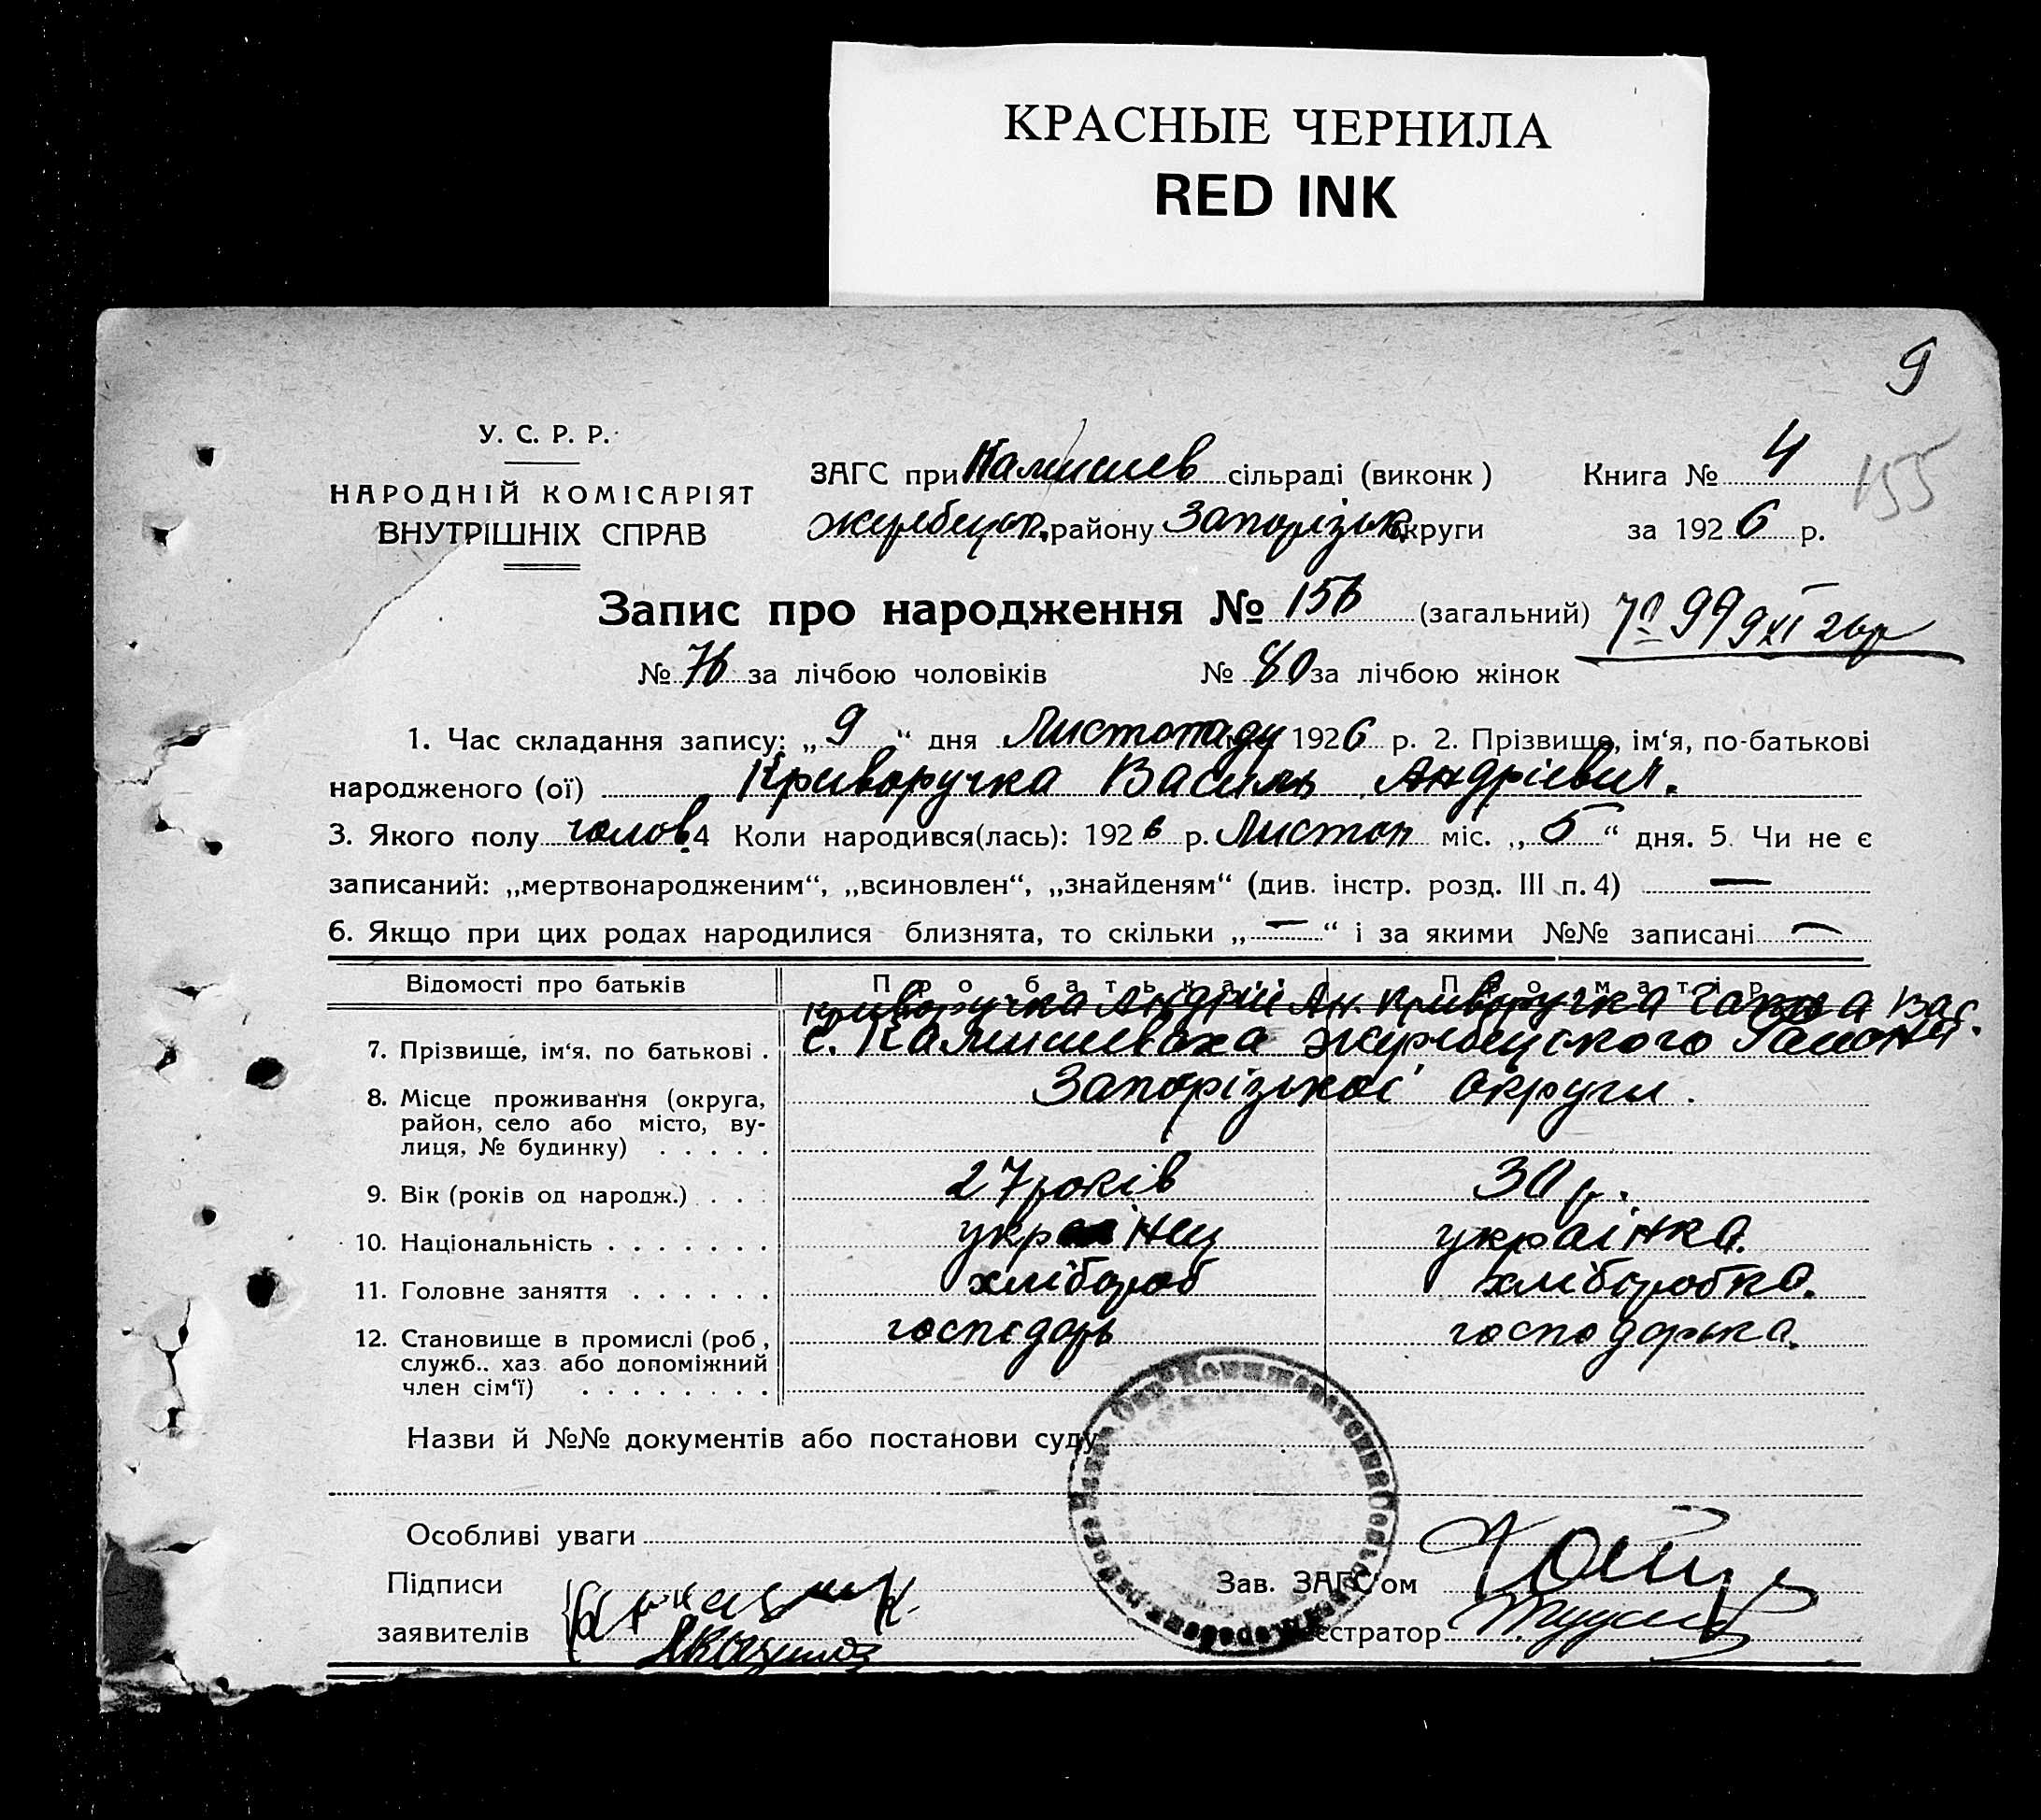 КРАСНЫЕ ЧЕРНИЛА
RED INK
9
У. С. Р. Р.
НАРОДНІЙ КОМІСАРІЯТ
ВНУТРІШНІХ СПРАВ
ЗАГС при Камишев сільраді (виконк)
Жеребецьк. району Запорізьк. округи
Книга № 4
за 1926 р.
155
Запис про народження № 156 (загальний)
99 9 XI 26 р
№ 76 за лічбою чоловіків № 80 за лічбою жінок
1. Час складання запису: „ 9 “ дня Листопаду 1926 р. 2. Прізвище, ім‘я, по-батькові
народженого (ої) Криворучка Василь Андрієвич.
3. Якого полу чолов. 4 Коли народився(лась): 1926 р. Листоп міс. „ 5 “ дня. 5. Чи не є
записаний: „мертвонародженим“, „всиновлен“, „знайденям“ (див. інстр. розд. III п. 4) —
6. Якщо при цих родах народилися близнята, то скільки „ — “ і за якими №№ записані —
Відомості про батьків Про батька Про матір
Криворучка Андрій Ан. Криворучка Ганна Вас.
7. Прізвище, ім‘я, по батькові . с. Камишеваха Жеребецского Района
8. Місце проживання (округа, Запорізької округи.
район, село або місто, ву-
лиця, № будинку) . . . . .
9. Вік (років од народж.) . . . 27 років 30 р.
10. Національність . . . . . . . українец українка.
11. Головне заняття . . . . . . хлібороб хліборобка.
12. Становище в промислі (роб, господарь господарька.
служб.. хаз. або допоміжний
член сім‘ї) . . . . . . . .
Назви й №№ документів або постанови суду
Особливі уваги
Підписи
заявителів
Зав. ЗАГС‘ом
єстратор